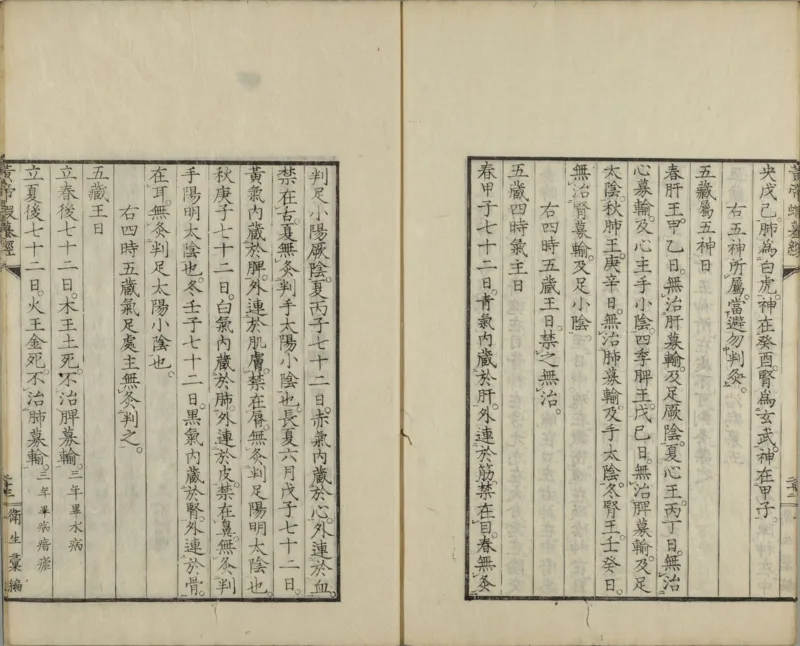 央戊己。肺為白虎。神在癸酉。腎為玄武。神在甲子。
右五神所屬。當避勿刺灸。
五藏屬五神日
春肝王。甲乙日。無治肝募輸。及足厥陰。夏心王。丙丁日。無治
心募輸。及心主手小陰。四季脾王。戊己日。無治脾募輸。及足
太陰。秋肺王。庚辛日。無治肺募輸。及手太陰。冬腎王。壬癸日。
無治腎募輸。及足小陰。
右四時五藏王日。禁之無治。
五歲四時氣主日
春甲子七十二日。青氣內藏於肝。外連於筋。禁在目。春無灸
刾足小陽厥陰。夏丙子七十二日。赤氣內藏於心。外連於血。
禁在舌。夏無灸刾手太陽小陰也。長夏六月戊子七十二日。
黃氣內藏於脾。外連於肌膚。禁在脣。無灸刾足陽明太陰也。
秋庚子七十二日。白氣內藏於肺。外連於皮。禁在鼻。無灸刾
手陽明太陰也。冬壬子七十二日。黑氣內藏於腎。外連於骨。
在耳。無灸刾足太陽小陰也。
右四時五藏氣足處主無灸刾之。
五藏王日
立春後七十二日。木王土死。不治脾募輸。三年畢水病
立夏後七十二日。火王金死。不治肺募輸。三年畢病瘖瘂
黃帝蝦蟇經
衛生彙編